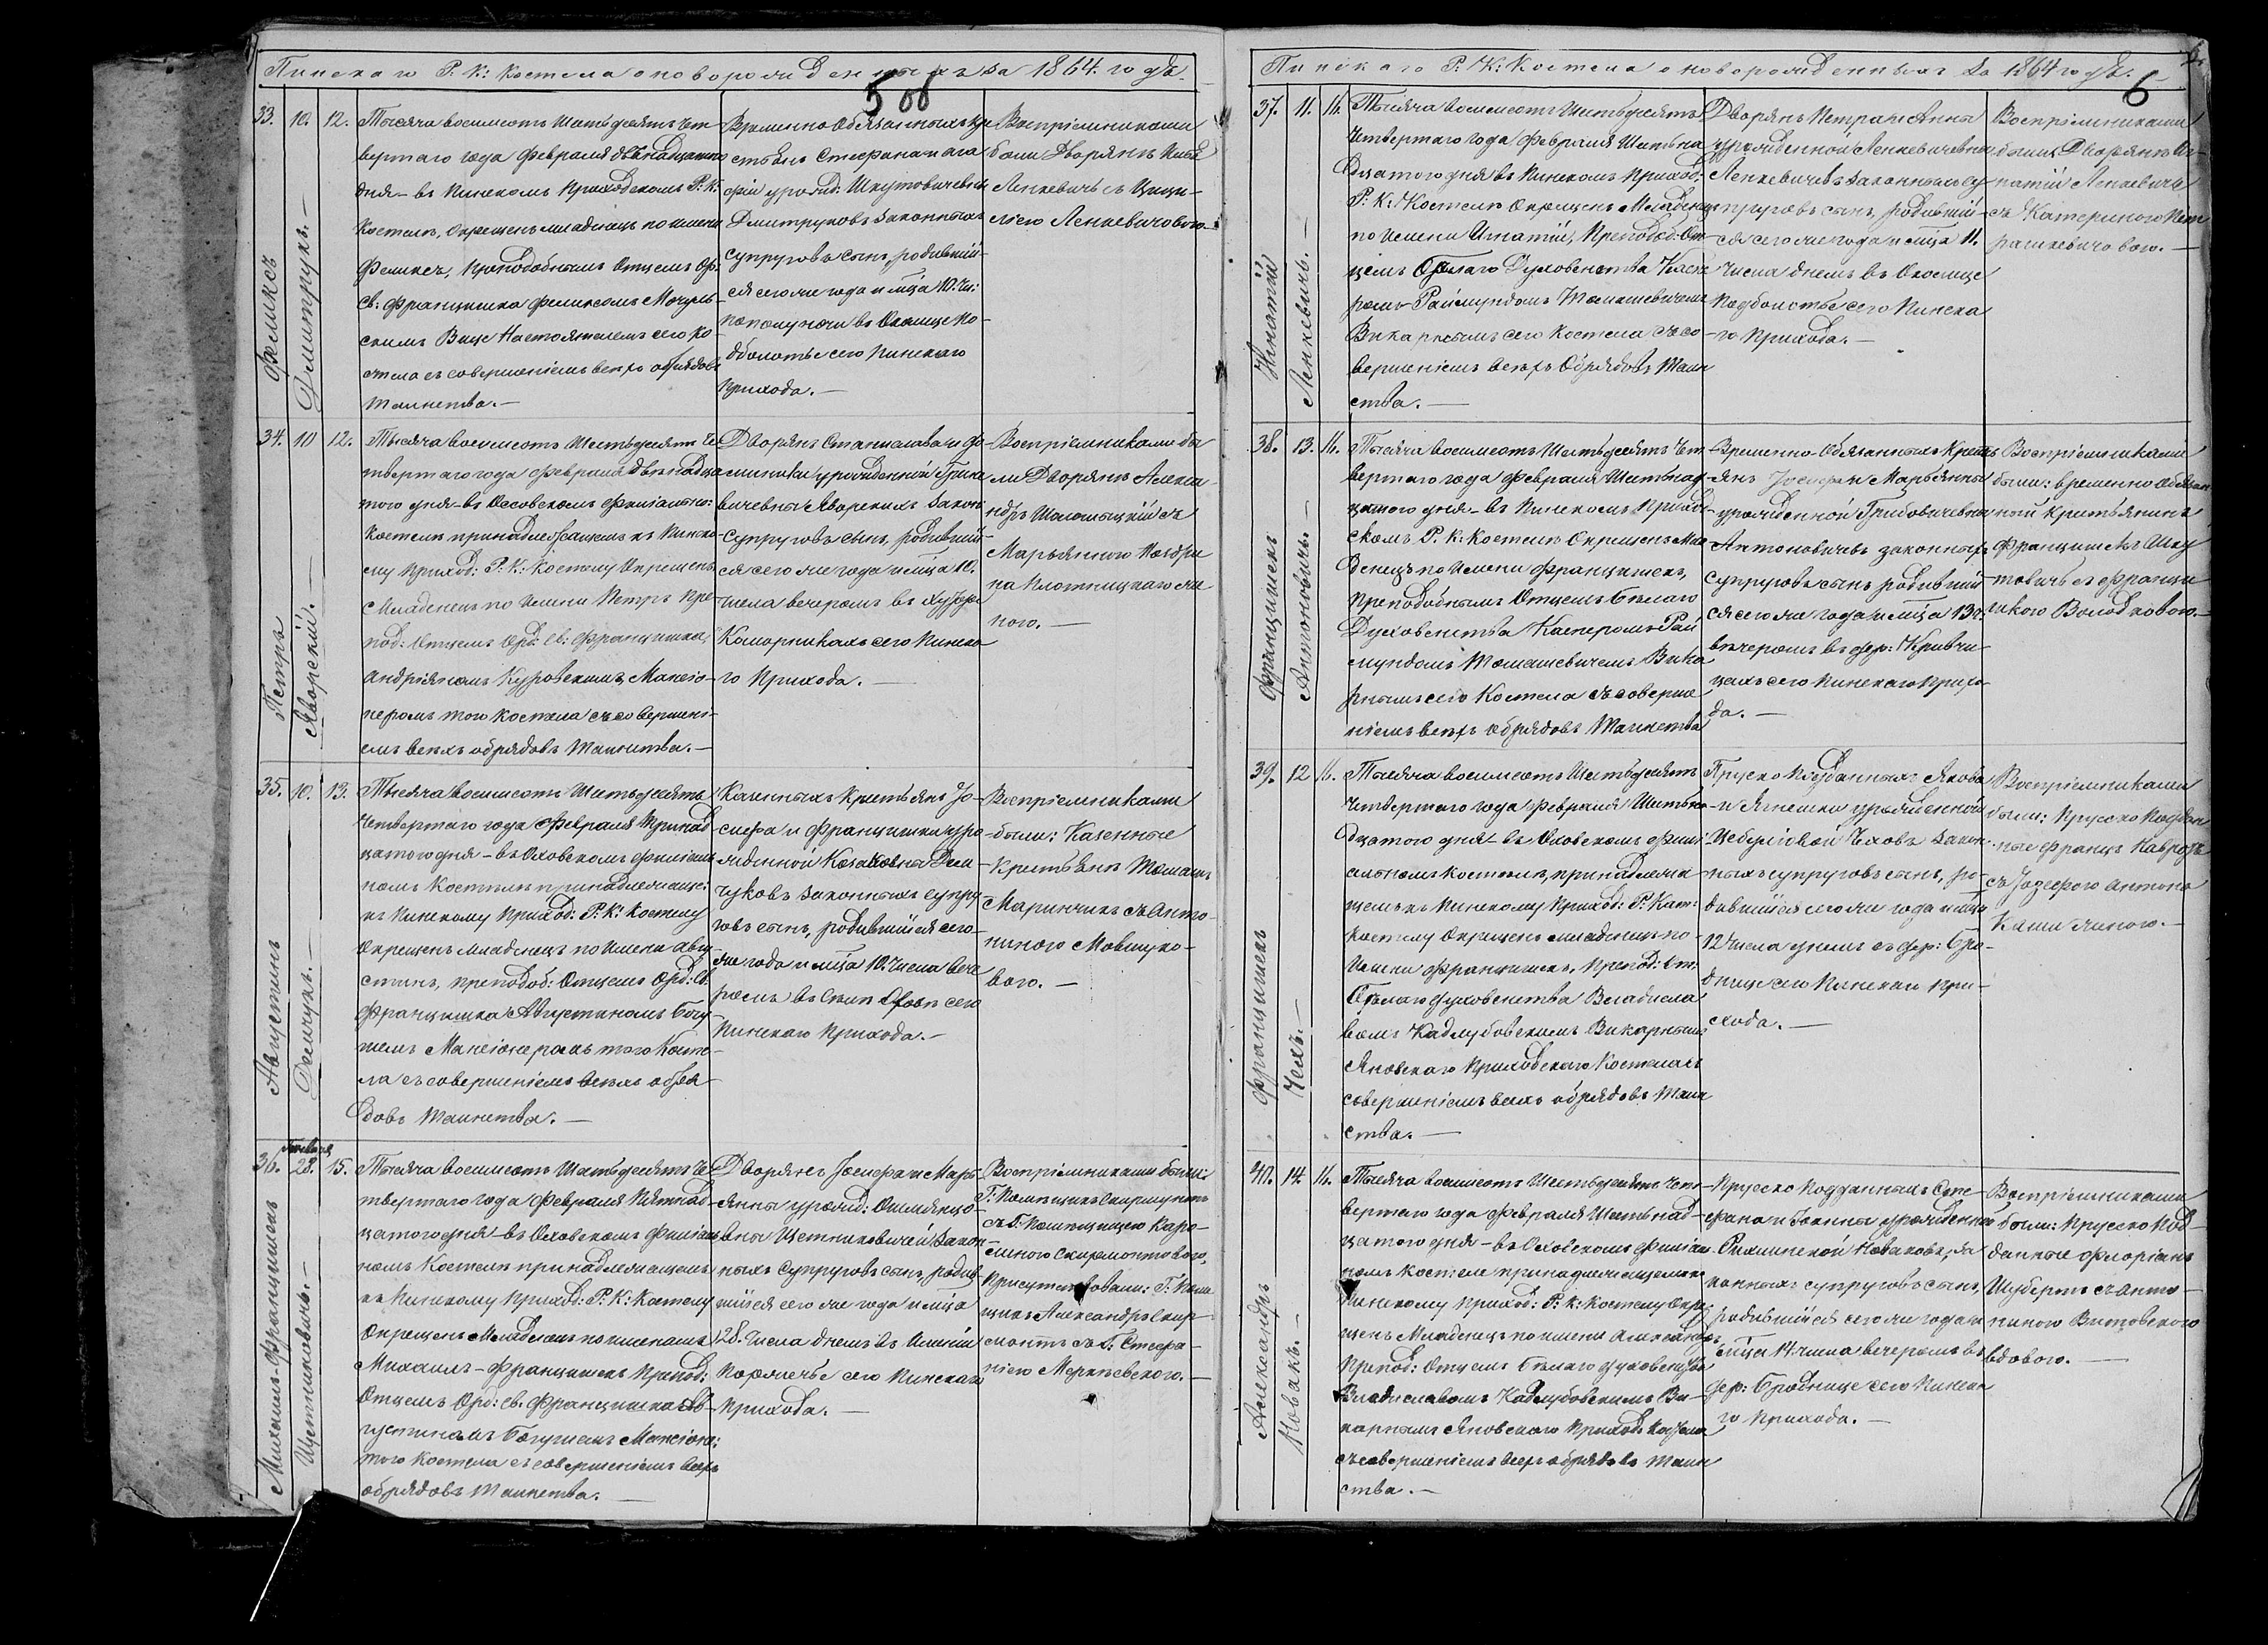 Пинскаго Р. К: Костела о новорожденныхъ за 1864. годъ.
5 об
33. 10. 12.
Феликсъ
Дмитрукъ.
Тысяча восемсотъ шестьдесятъ чет
вертаго года Февраля двѣнадцатаго
дня - въ Пинскомъ Приходскомъ Р. К:
Костелѣ, окрещенъ младенецъ по имени
Феликсъ, Преподобнымъ Отцемъ Ор:
св: Францишка Феликсомъ
скимъ Вице Настоятелемъ сего Ко
стела съ совершеніемъ всѣхъ обрядовъ
таинства. —
Временно Обязанныхъ Кре
стьянъ Стефана и Ага
фіи урожд: Шкутовичевны
Дмитруковъ законныхъ
супруговъ сынъ, родивший-
ся сего же года и мѣсца 10. чи:
по полуночи въ Околице По-
дболотье сего Пинскаго
прихода. —
Воспріемниками
были Дворянъ
Ленкевичъ съ Цеци-
ліею Ленкевичовою. —
34. 10 12.
Петръ
Яворскій.
Тысяча восемсотъ шестьдесятъ че
твертаго года Февраля двѣнадца
того дня - въ Оховскомъ Филіально:
Костелѣ принадлежащемъ къ Пинско-
му Приход: Р. К: Костелу Окрещенъ
Младенецъ по имени Петръ Пре
под: Отцемъ Орд: св: Францишка,
Андріяномъ Куровскимъ, Мансіо-
неромъ того Костела съ совершені-
емъ всѣхъ обрядовъ таинства. —
Дворянъ Станислава и До
миники урожденной Грине
вичевны Яворскихъ закон:
супруговъ сынъ, родивший-
ся сего же года и мѣсца 10.
числа вечеромъ въ
сего Пинска
го Прихода. —
Воспріемниками бы
ли Дворянъ Алекса
ндръ съ
Марьянною
ною. —
35. 10. 13.
Августинъ
Демчукъ. —
Тысяча восемсотъ шестьдесятъ
четвертаго года Февраля тринад
цатого дня - въ Оховскомъ филіаль
номъ Костелѣ принадлежаще:
къ Пинскому Приход: Р. К: Костелу
Окрещенъ младенецъ по имени Авгу
стинъ, Преподоб: Отцемъ Орд: св.
Францишка Августиномъ Богу
шемъ Мансіонеромъ того Косте-
ла съ совершеніемъ всѣхъ обря
довъ таинства. —
Казенныхъ Крестьянъ Іо-
сифа и Францишки уро
жденной Дем
чуковъ законныхъ супру
говъ сынъ, родившийся сего-
же года и мѣсца 10. числа вече
ромъ въ Охове сего
Пинскаго Прихода. —
Воспріемниками
были: Казенные
Крестьянъ Томашъ
Маринчикъ съ Анто-
ниною
вою. —
36. Января 28. 15.
Михаилъ-Францишекъ
Щетниковичъ. —
Тысяча восемсотъ шестьдесятъ че
твертаго года Февраля Пятнад
цатого дня - въ Оховскомъ Филіаль
номъ Костелѣ принадлежащемъ
къ Пинскому Приход: Р. К: Костелу
Окрещенъ Младенецъ по именамъ
Михаилъ-Францишекъ Препод:
Отцемъ Орд: св. Францишка Ав-
густиномъ Богушемъ Мансіон:
того Костела съ совершеніемъ всѣхъ
обрядовъ таинства. —
Дворянъ Іосифа и Марь-
янны урожд:
вны Щетниковичей закон-
ныхъ супруговъ сынъ, родив
шийся сего же года и мѣсца
28. числа днемъ въ Имѣніи
Порѣчьѣ сего Пинскаго
Прихода. —
Воспріемниками были:
Г. Помѣщикъ Скирмунтъ
съ Г. Помѣщицею Каро-
линою Скирмонтовою,
Присутствовали: Г. Помѣ
щикъ Александръ Скир-
монтъ съ Г. Стефа-
ніею —
Пинскаго Р. К: Костела о новорожденныхъ за 1864 годъ.
6
37. 11. 16.
Игнатій
Ленкевичъ. —
Тысяча восемсотъ шестьдесятъ
четвертаго года Февраля шестьна
дцатого дня въ Пинскомъ Приход:
Р. К: Костелѣ Окрещенъ Младенецъ
по имени Игнатій, Преподоб: От-
цемъ Бѣлаго Духовенства Каспе
ромъ Раймундомъ Томашевичемъ
Викарнымъ сего Костела съ со-
вершеніемъ всѣхъ Обрядовъ Таин
ства. —
Дворянъ Петра и Анны
урожденной Ленкевичевны
Ленкевичевъ законныхъ су
пруговъ сынъ, родивший-
ся сего же года и мѣсца 11.
числа днемъ въ Околице
Подболотьѣ сего Пинска
го Прихода. —
Воспріемниками
были, Дворянъ Иг-
натій Ленкевичъ
съ Катериною Пет
рашкевичовою. —
38. 13. 16.
Францишекъ
Антоновичъ. —
Тысяча восемсотъ шестьдесятъ чет
вертаго года Февраля шестьнад
цатого дня - въ Пинскомъ Приход-
скомъ Р. К: Костелѣ Окрещенъ Мла
денецъ по имени Францишекъ,
Преподобнымъ Отцемъ Бѣлаго
Духовенства Касперомъ Рай
мундомъ Томашевичемъ Вика
рнымъ сего Костела съ соверше
ніемъ всѣхъ обрядовъ Таинства
Временно-Обязанныхъ Кресть
янъ Іосифа и Марьянны
урожденной Грибовичевны
Антоновичевъ законныхъ
супруговъ сынъ родивший
ся сего же года и мѣсца 13ч:
вечеромъ въ дер: Кривчи-
цахъ сего Пинскаго Прихо
да. —
Воспріемниками
были: временно обязан
ный Крестьянинъ
Францишекъ Шку
товичъ съ Франци
шкою Володковою. —
39. 12 16.
Францишекъ
Чехъ. —
Тысяча восемсотъ шестьдесятъ
четвертаго года Февраля шестьна
дцатого дня - въ Оховскомъ фили
альномъ Костелѣ, принадлежа
щемъ къ Пинскому Приход: Р. Кат:
Костелу Окрещенъ младенецъ по-
имени Францишекъ, Препод: От:
Бѣлаго Духовенства Владисла
вомъ Кадлубовскимъ Викарнымъ
Яновского Приходского Костела съ
совершеніемъ всѣхъ обрядовъ таин
ства. —
Пруско Подданныхъ Якова
и Агнешки урожденной
Чеховъ закон
ныхъ супруговъ сынъ, ро-
дившийся сего же года и мѣсца
12 числа днемъ въ дер: Бро-
днице сего Пинскаго При-
хода. —
Воспріемниками
были: Прусско Поддан
ные Францъ
съ Юзефою Антоно
—
40. 14. 16.
Александръ
Новакъ. —
Тысяча восемсотъ шестьдесятъ чет-
вертаго года Февраля шестьнад-
цатого дня - въ Оховскомъ филіаль
номъ Костеле принадлежащемъ къ
Пинскому Приход: Р. К: Костелу Окре
щенъ Младенецъ по имени Александръ
Препод: Отцемъ Бѣлаго Духовенства
Владиславомъ Кадлубовскимъ Ви-
карнымъ Яновского Приход: Костела
съ совершеніемъ всѣхъ обрядовъ таин
ства. —
Прусско Подданныхъ Сте
фана и Іоанны урожденной
Новаковъ, за
конныхъ супруговъ сынъ,
родившийся сего же года и
мѣсца 14 числа вечеромъ въ
дер: Броднице сего Пинска
го Прихода. —
Воспріемниками
были: Прусско Под-
данные Флоріанъ
Шубертъ съ Анто-
ниною Витовского
вдовою. —